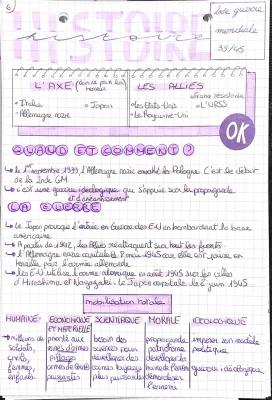 6
HISTOIRE
histoire
2nde guerre
mondiale
39/45
L'AXE
LES ALLIÉS
• Italie
• Japon
• Allemagne nazie
• Les Etats-Unis
• L'URSS
• Le Royaume-Uni
OK
QUAND ET COMMENT ?
le 1er septembre 1939 l'Allemagne nazie envahit la Pologne. C'est le début
de la 2nde GM.
c'est une guerre idéologique qui s'appuie sur la propagande
et d'anéantissement
LA GUERRE
Le Japon provoque l'entrée en guerre des E-U en bombardant la base
américaine
A partir de 1942, les Alliés contre-attaquent sur tout les fronts.
L'Allemagne nazie capitule le 8 mai 1945 car elle est
l'armée allemande
les E-U utilise l'arme atomique en août 1945 sur les villes
d'Hiroshima et Nagazaki. Le Japon capitule le 2 1945
mobilisation totale
HUMAINE
ÉCONOMIQUE
ET MATÉRIELLE
SCIENTIFIQUE
MORALE
IDÉOLOGIQUE
millions de
soldats,
civils,
femmes,
enfants
besoin des
sciences pour
développer des
armes toujours
plus puissantes
propagande
patriotisme
développer la
haine de l'ennemi
démoraliser
l'ennemi
imposer son modèle
politique
guerre idéologique